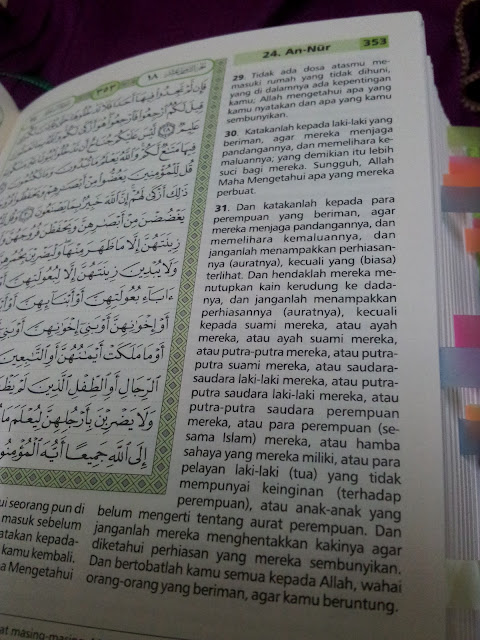 24. An-Nūr 353
١٨
٣٥٣
فَإِن لَّمْ تَجِدُوا۟ فِيهَآ أَحَدًا فَلَا
قِيلَ لَكُمُ ٱرْجِعُوا۟ فَٱرْجِعُوا۟ هُوَ أَزْكَىٰ
عَلِيمٌ
فِيهَا مَتَٰعٌ لَّكُمْ وَٱللَّهُ يَعْلَمُ
قُل لِّلْمُؤْمِنِينَ يَغُضُّوا۟ مِنْ أَبْصَٰرِهِمْ
ذَٰلِكَ أَزْكَىٰ لَهُمْ إِنَّ ٱللَّهَ خَبِيرٌۢ بِمَا يَصْنَعُونَ
يَغْضُضْنَ مِنْ أَبْصَٰرِهِنَّ وَيَحْفَظْنَ فُرُوجَهُنَّ
زِينَتَهُنَّ إِلَّا مَا ظَهَرَ مِنْهَا وَلْيَضْرِبْنَ
وَلَا يُبْدِينَ زِينَتَهُنَّ إِلَّا لِبُعُولَتِهِنَّ
ءَابَآءِ بُعُولَتِهِنَّ أَوْ أَبْنَآئِهِنَّ
أَوْ إِخْوَٰنِهِنَّ أَوْ بَنِىٓ إِخْوَٰنِهِنَّ
أَوْ مَا مَلَكَتْ أَيْمَٰنُهُنَّ أَوِ ٱلتَّٰبِعِينَ
ٱلرِّجَالِ أَوِ ٱلطِّفْلِ ٱلَّذِينَ لَمْ
وَلَا يَضْرِبْنَ بِأَرْجُلِهِنَّ لِيُعْلَمَ مَا
إِلَى ٱللَّهِ جَمِيعًا أَيُّهَ ٱلْمُؤْمِنُونَ
29. Tidak ada dosa atasmu me-
masuki rumah yang tidak dihuni,
yang di dalamnya ada kepentingan
kamu; Allah mengetahui apa yang
kamu nyatakan dan apa yang kamu
sembunyikan.
30. Katakanlah kepada laki-laki yang
beriman, agar mereka menjaga
pandangannya, dan memelihara ke-
maluannya; yang demikian itu lebih
suci bagi mereka. Sungguh, Allah
Maha Mengetahui apa yang mereka
perbuat.
31. Dan katakanlah kepada para
perempuan yang beriman, agar
mereka menjaga pandangannya, dan
memelihara kemaluannya, dan
janganlah menampakkan perhiasan-
nya (auratnya), kecuali yang (biasa)
terlihat. Dan hendaklah mereka me-
nutupkan kain kerudung ke dada-
nya, dan janganlah menampakkan
perhiasannya (auratnya), kecuali
kepada suami mereka, atau ayah
mereka, atau ayah suami mereka,
atau putra-putra mereka, atau putra-
putra suami mereka, atau saudara-
saudara laki-laki mereka, atau putra-
putra saudara laki-laki mereka, atau
putra-putra saudara perempuan
mereka, atau para perempuan (se-
sama Islam) mereka, atau hamba
sahaya yang mereka miliki, atau para
pelayan laki-laki (tua) yang tidak
mempunyai keinginan (terhadap
perempuan), atau anak-anak yang
belum mengerti tentang aurat perempuan. Dan
janganlah mereka menghentakkan kakinya agar
diketahui perhiasan yang mereka sembunyikan.
Dan bertobatlah kamu semua kepada Allah, wahai
orang-orang yang beriman, agar kamu beruntung.
seorang pun di
masuk sebelum
atakan kepada-
kamu kembali.
Mengetahui
masing-masing